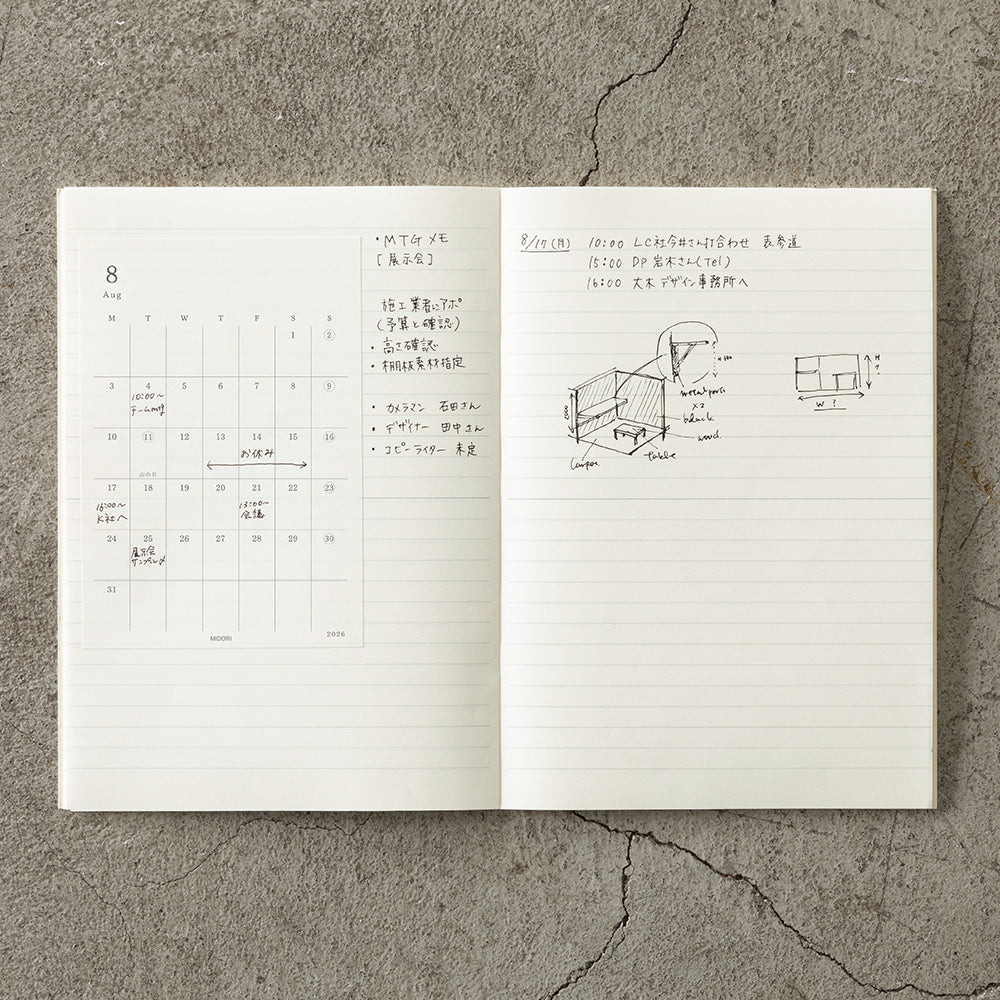 8
Aug
M T W T F S S
1 2
3 4 5 6 7 8 9
10:00〜
チームmtg
10 11 12 13 14 15 16
お休み
山の日
17 18 19 20 21 22 23
16:00〜
K社へ
13:00〜
会議
24 25 26 27 28 29 30
展示会
サンプル〆
31
MIDORI
2026
・MTGメモ
[展示会]
施工業者にアポ
(予算と確認)
・高さ確認
・棚板素材指定
・カメラマン 石田さん
・デザイナー 田中さん
・コピーライター 未定
8/17(月) 10:00 LC社今井さん打合わせ 表参道
15:00 DP岩木さん(Tel)
16:00 大木デザイン事務所へ
metal parts
×2
black
wood
table
H ?
W ?